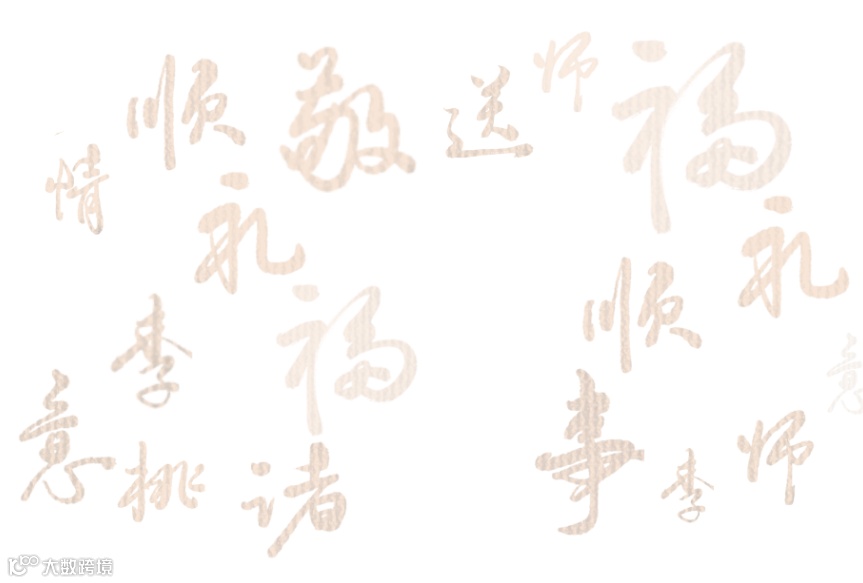 顺
敬
送
师
福
情
礼
礼
顺
福
李
意
意
事
师
桃
诸
李
大数跨境